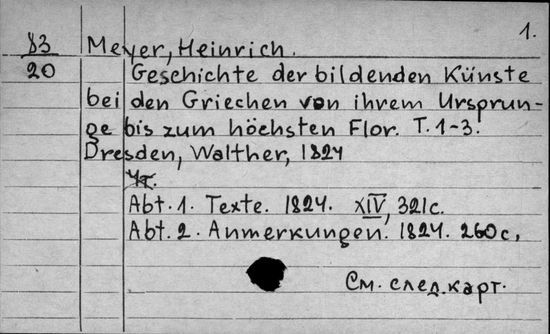 1.
83 Meyer, Heinrich.
20 Geschichte der bildenden Künste
bei den Griechen von ihrem Ursprun-
ge bis zum höchsten Flor. T. 1-3.
Dresden, Walther, 1824
Abt. 1. Texte. 1824. XIV, 321c.
Abt. 2. Anmerkungen. 1824. 260c,
См. след. карт.